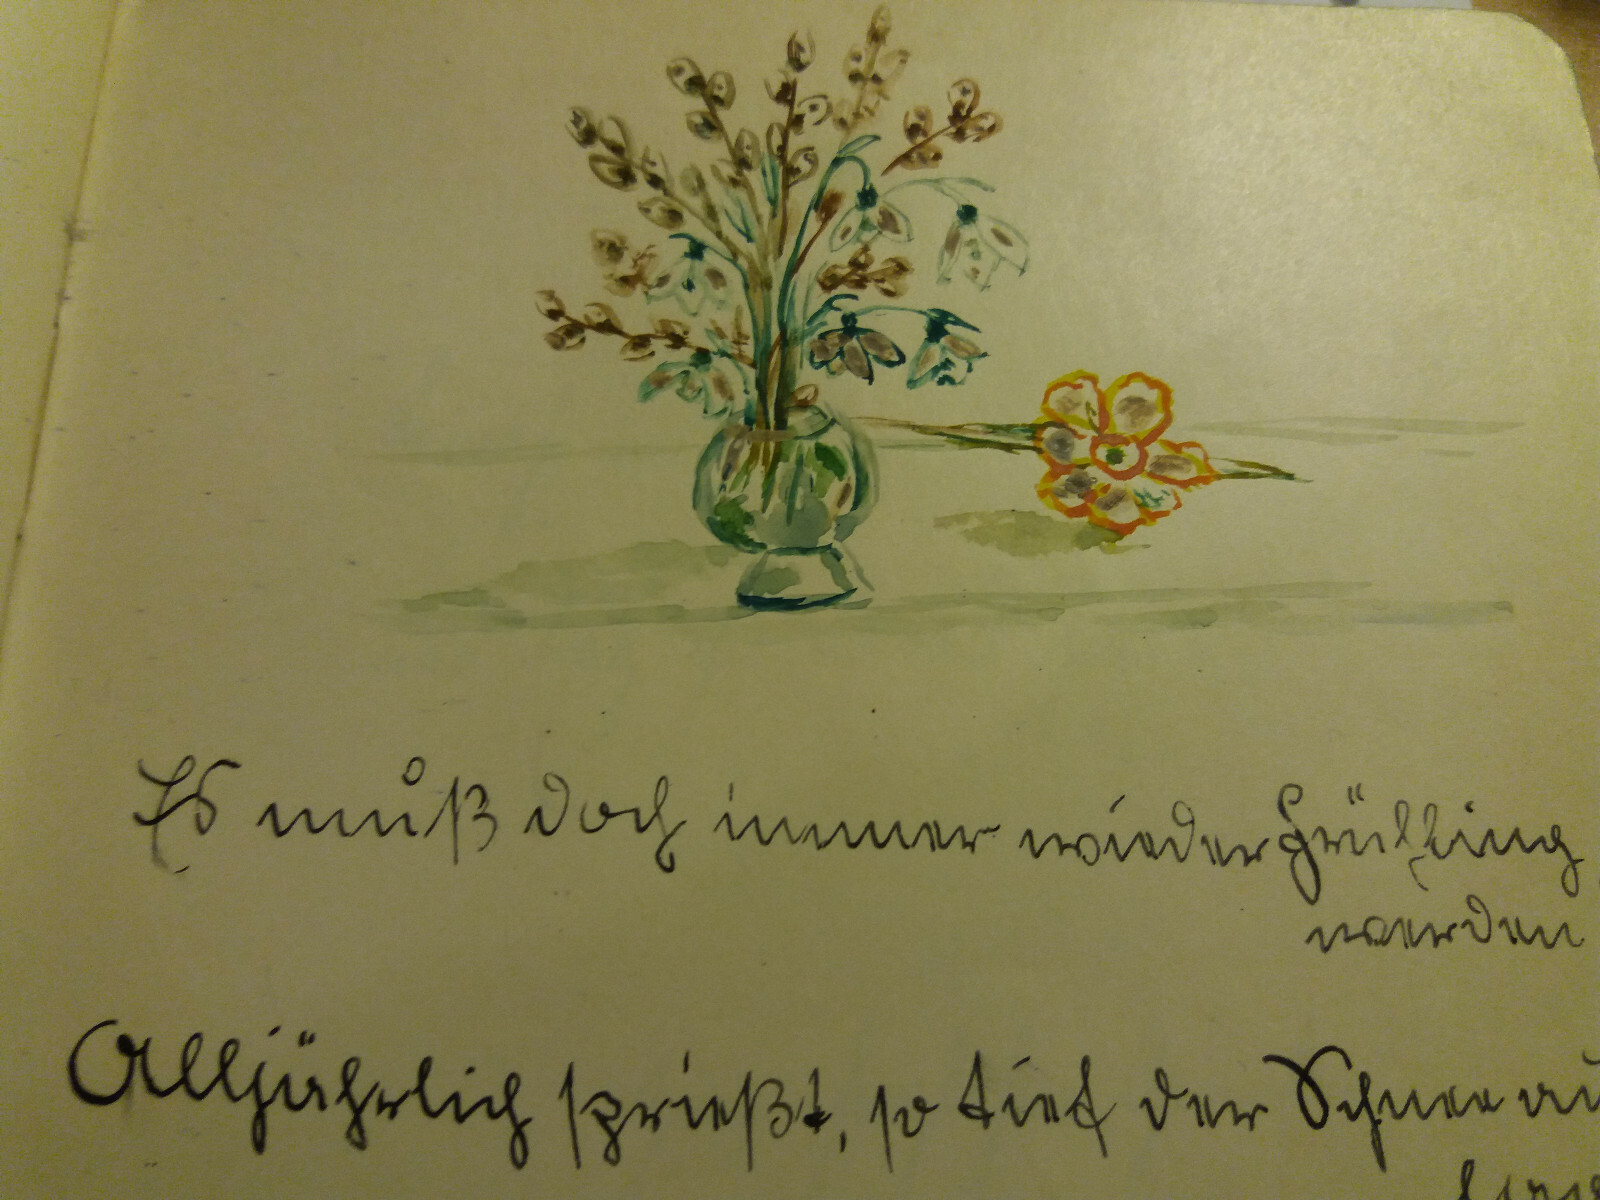 Es muß doch immer wieder Frühling
werden
Alljährlich sprießt, so tief der Schnee au